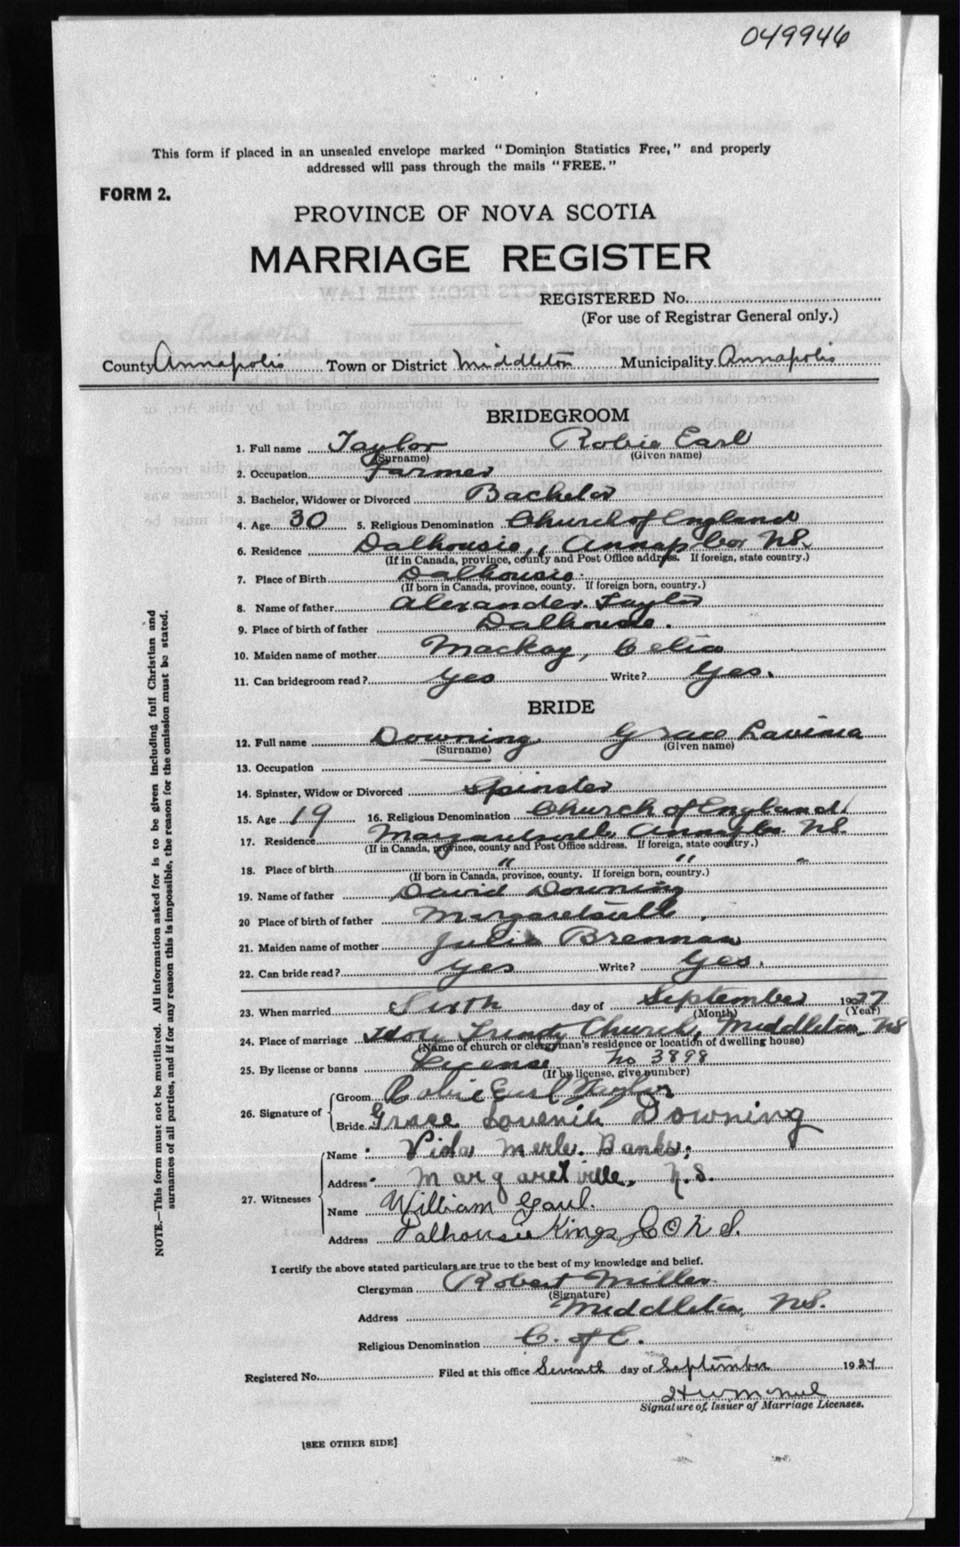 049946
This form if placed in an unsealed envelope marked "Dominion Statistics Free," and properly
addressed will pass through the mails "FREE."
FORM 2.
PROVINCE OF NOVA SCOTIA
MARRIAGE REGISTER
REGISTERED No.
(For use of Registrar General only.)
County Annapolis Town or District Middleton Municipality Annapolis
BRIDEGROOM
1. Full name Taylor Robie Earl
(Surname) (Given name)
2. Occupation Farmer
3. Bachelor, Widower or Divorced Bachelor
4. Age 30 5. Religious Denomination Church of England
6. Residence Dalhousie, Annap Co. N.S.
(If in Canada, province, county and Post Office address. If foreign, state country.)
7. Place of Birth Dalhousie.
(If born in Canada, province, county. If foreign born, country.)
8. Name of father Alexander Taylor
9. Place of birth of father Dalhousie.
10. Maiden name of mother Mackay, Celia
11. Can bridegroom read? Yes Write? Yes.
BRIDE
12. Full name Downing Grace Lavinia
(Surname) (Given name)
13. Occupation
14. Spinster, Widow or Divorced Spinster
15. Age 19 16. Religious Denomination Church of England
17. Residence Margaretsville Annap Co. N.S.
(If in Canada, province, county and Post Office address. If foreign, state country.)
18. Place of birth " " "
(If born in Canada, province, county. If foreign born, country.)
19. Name of father David Downing
20 Place of birth of father Margaretsville.
21. Maiden name of mother Julia Brennan
22. Can bride read? Yes Write? Yes.
23. When married Sixth day of September 1927
(Month) (Year)
24. Place of marriage Holy Trinity Church, Middleton, N.S
(Name of church or clergyman's residence or location of dwelling house)
25. By license or banns License No 3898
(If by license, give number)
26. Signature of Groom Robie Earl Taylor
Bride Grace Lovenih Downing
27. Witnesses Name Vida Merle Banks.
Address Margaretville, N.S.
Name William Gaul.
Address Dalhousie Kings Co N.S.
I certify the above stated particulars are true to the best of my knowledge and belief.
Clergyman Robert Miller
(Signature)
Address Middleton, N.S.
Religious Denomination C. of E.
Registered No. Filed at this office Seventh day of September 1927
Signature of Issuer of Marriage Licenses.
[SEE OTHER SIDE]
NOTE.—This form must not be mutilated. All information asked for is to be given including full Christian and
surnames of all parties, and if for any reason this is impossible, the reason for the omission must be stated.